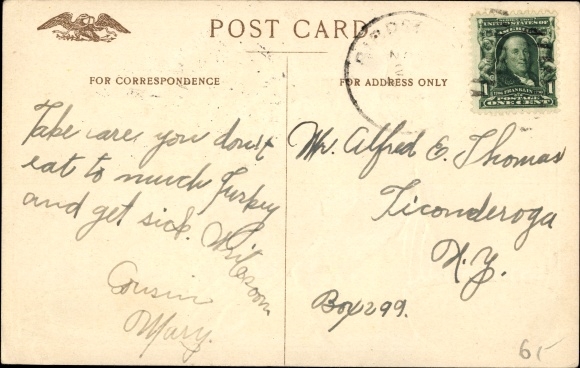 POST CARD
FOR CORRESPONDENCE
FOR ADDRESS ONLY
UNITED STATES OF AMERICA
FRANKLIN
1 1
POSTAGE
ONE CENT
Take care you don't
eat to much Turkey
and get sick. Write soon
Cousin
Mary.
Mr. Alfred E. Thomas
Ticonderoga
N.Y.
Box 299.
6/-